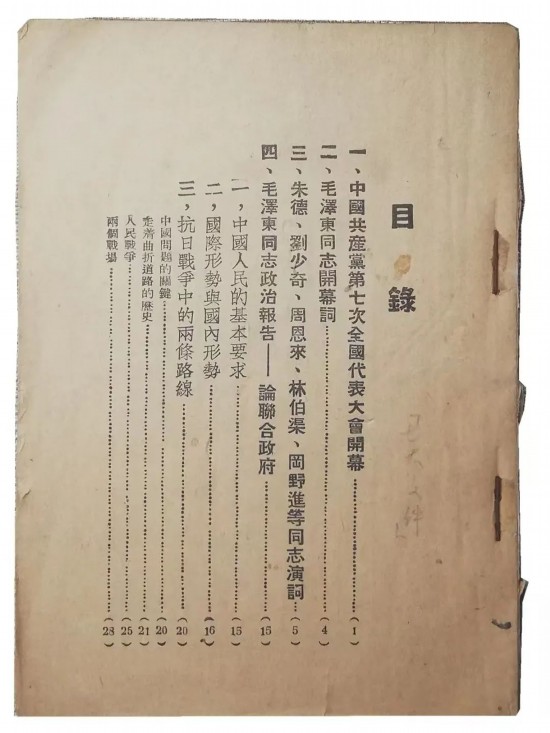 目錄
一、中國共産黨第七次全國代表大會開幕……(1)
二、毛澤東同志開幕詞……(4)
三、朱德、劉少奇、周恩來、林伯渠、岡野進等同志演詞……(5)
四、毛澤東同志政治報告——論聯合政府……(15)
一，中國人民的基本要求……(15)
二，國際形勢與國內形勢……(16)
三，抗日戰爭中的兩條路線……(20)
中國問題的關鍵……(20)
走着曲折道路的歷史……(21)
人民戰爭……(25)
兩個戰場……(28)